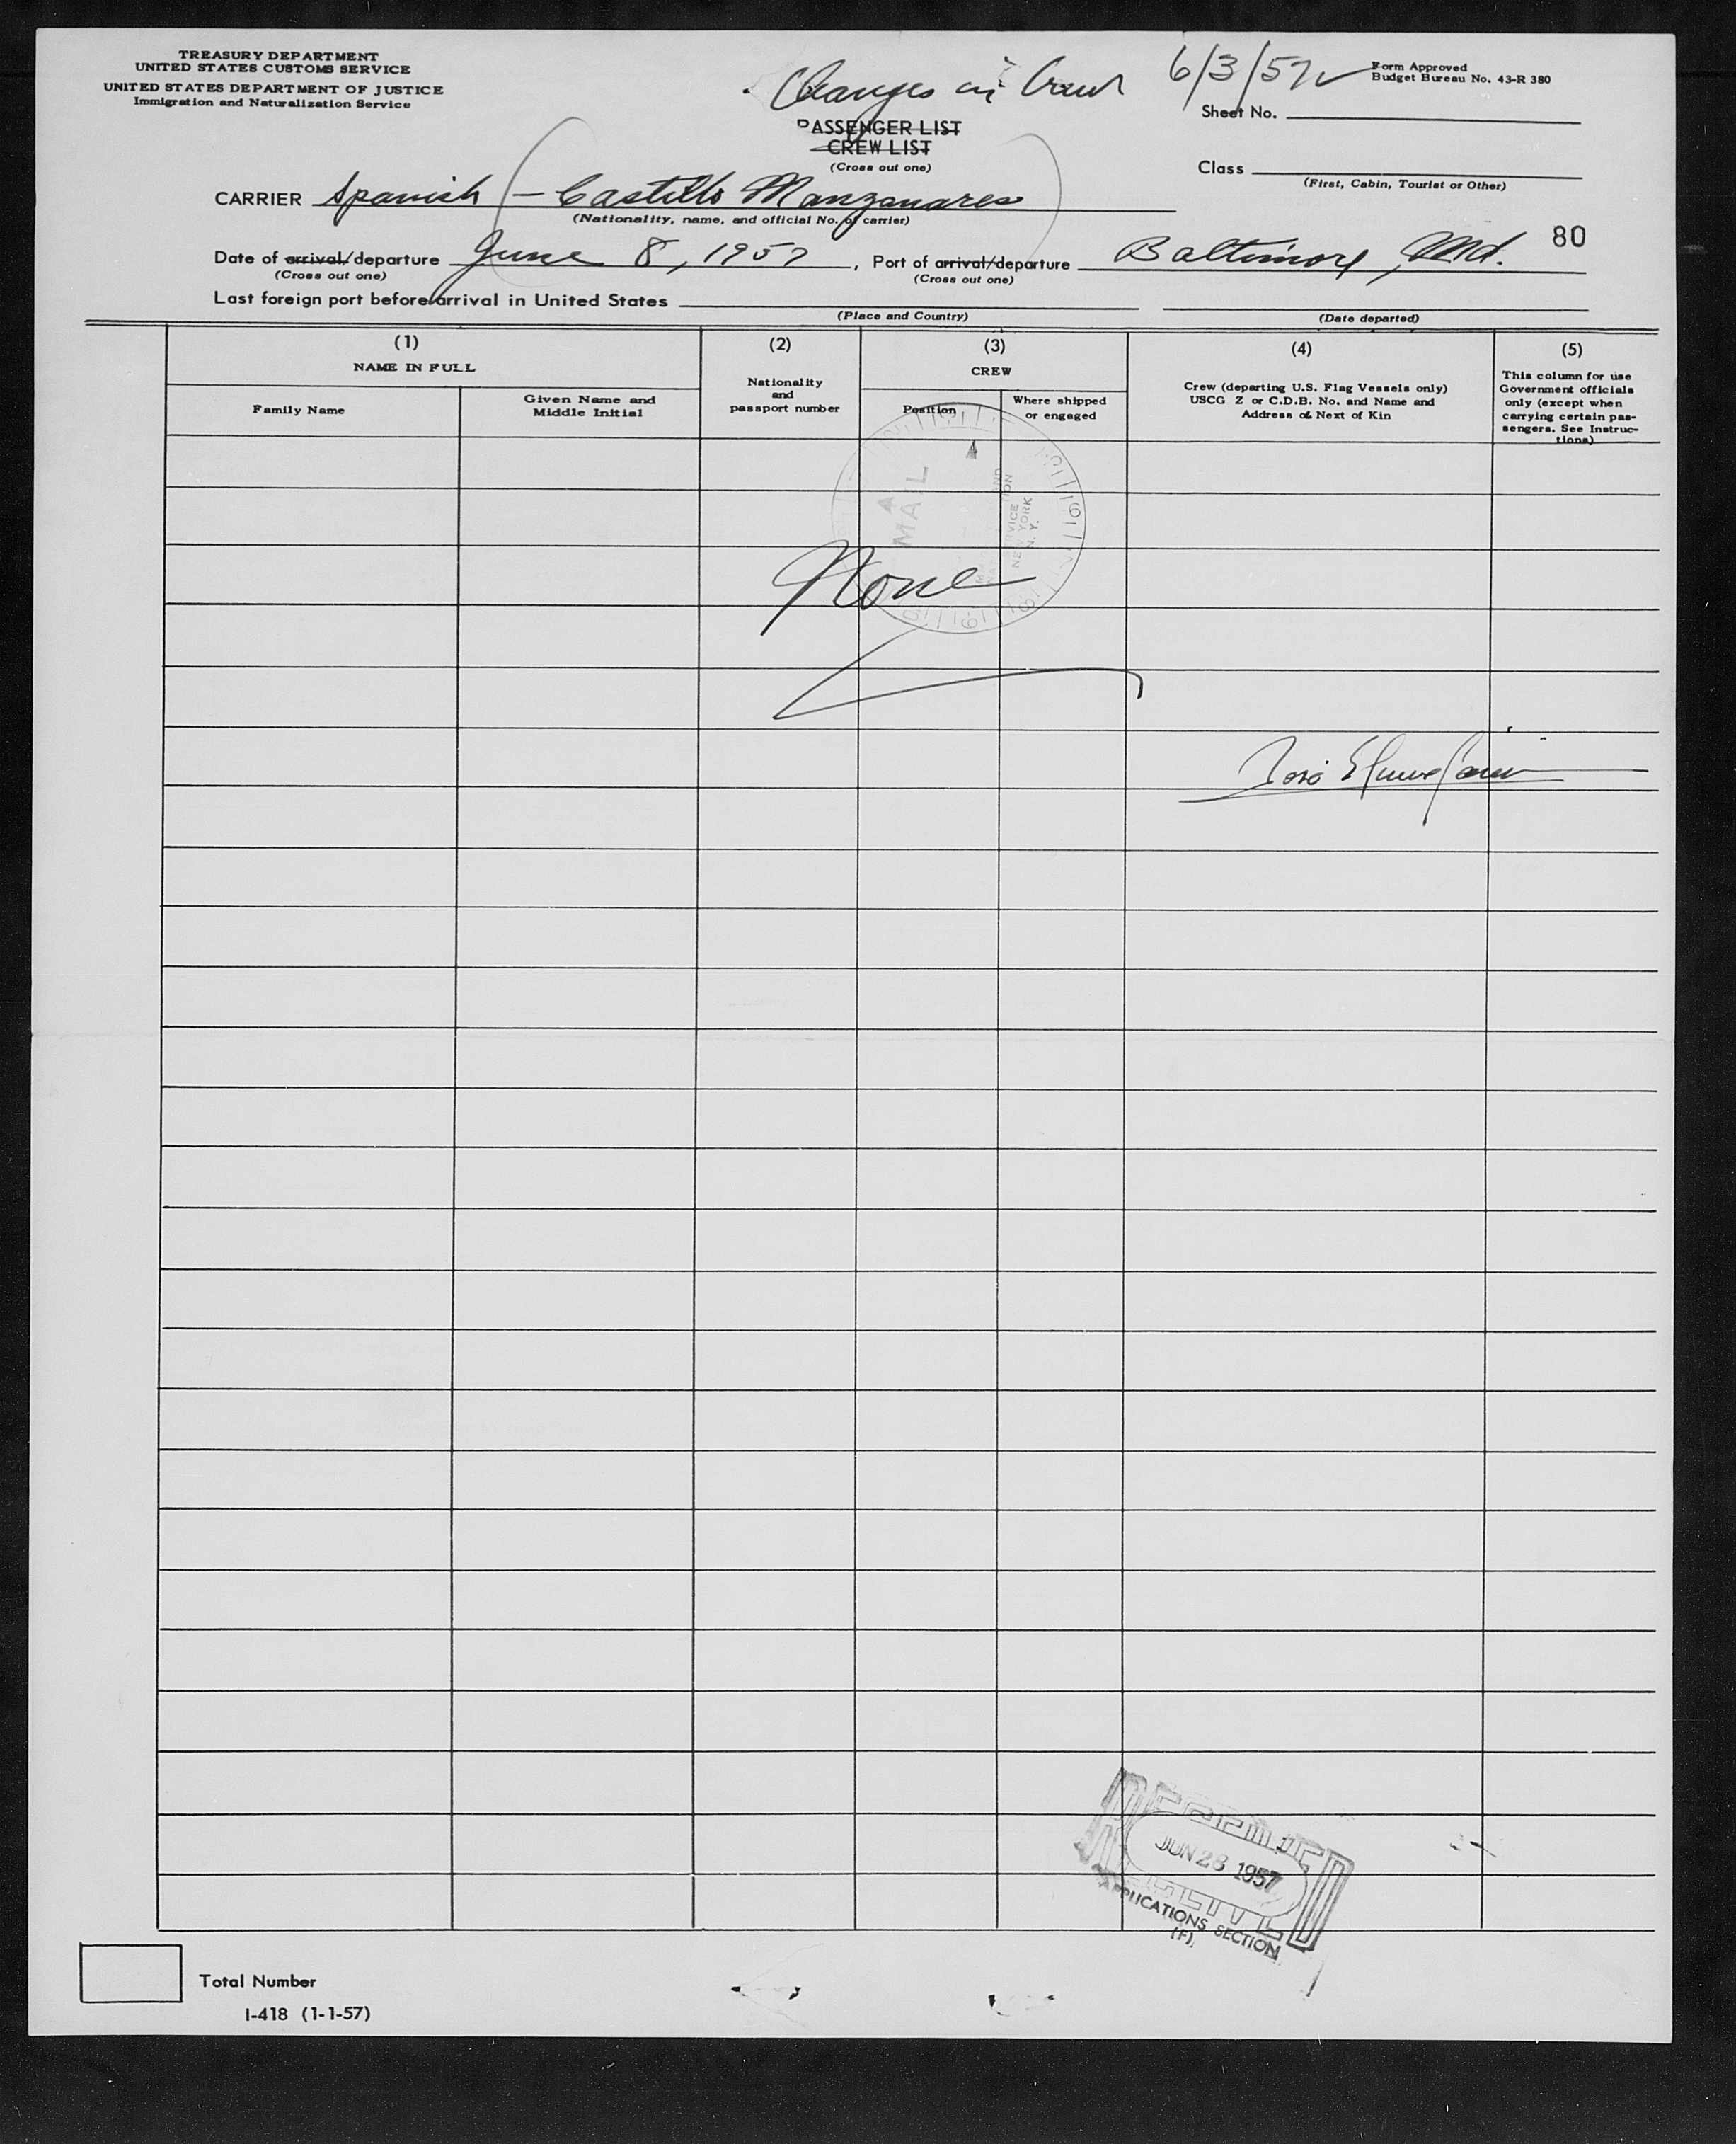 TREASURY DEPARTMENT
UNITED STATES CUSTOMS SERVICE
UNITED STATES DEPARTMENT OF JUSTICE
Immigration and Naturalization Service
Changes in Crew 6/3/57
Form Approved
Budget Bureau No. 43-R 380
Sheet No.
PASSENGER LIST
CREW LIST
(Cross out one)
Class
(First, Cabin, Tourist or Other)
CARRIER Spanish - Castillo Manzanares
(Nationality, name, and official No. of carrier)
80
Date of arrival/departure June 8, 1957, Port of arrival/departure Baltimore, Md.
(Cross out one) (Cross out one)
Last foreign port before arrival in United States
(Place and Country) (Date departed)
(1)
NAME IN FULL
Family Name
Given Name and
Middle Initial
(2)
Nationality
and
passport number
(3)
CREW
Position
Where shipped
or engaged
(4)
Crew (departing U.S. Flag Vessels only)
USCG Z or C.D.B. No. and Name and
Address of Next of Kin
(5)
This column for use
Government officials
only (except when
carrying certain pas-
sengers. See Instruc-
tions)
MAIL
NEW YORK
N. Y.
None
José
JUN 28 1957
APPLICATIONS SECTION
(F)
Total Number
I-418 (1-1-57)